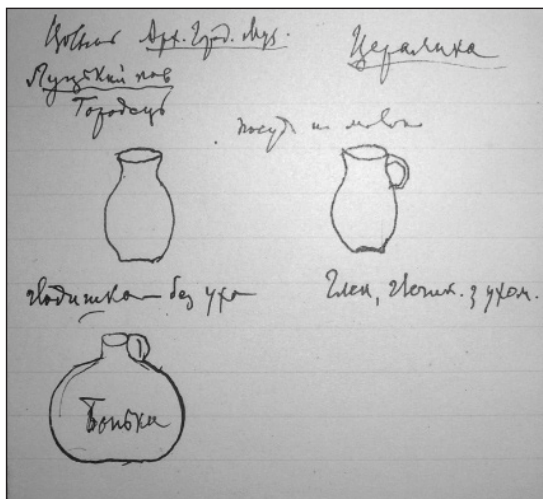 Арх. Град. Муз.
Цераміка
Луцький пов
Городець
посуд на молоко
гладишка — без уха
Глек, глечик. з ухом.
Бонька